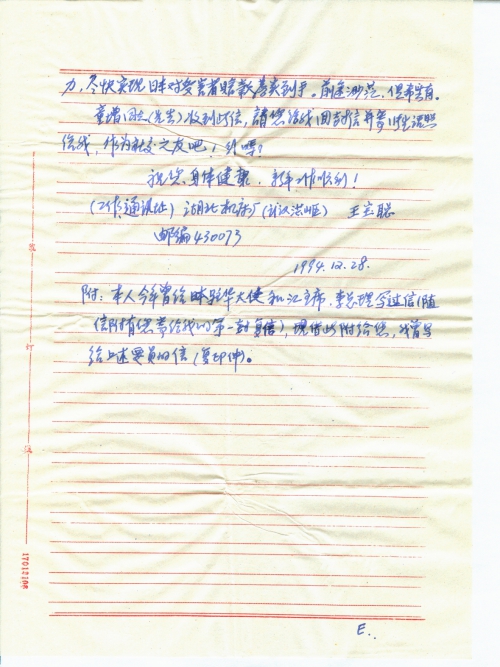 力，尽快实现日本对受害者赔款落实到手。前途渺茫，但希望有。
童增同志(先生)收到此信，請您给我回封信并寄
给我，作为社交之友吧！
祝您身体健康，新年
(工作通讯址) 湖北机床厂(武汉洪山区) 王宝聪
邮编430073
1994.12.28.
附：本人今年曾给日本驻华大使和江主席，李总理写过信(随
信附有您寄给我的第一封复信)，现借此附给您，我曾写
给上述要员的信(复印件)。
装
订
线
17012108
E..